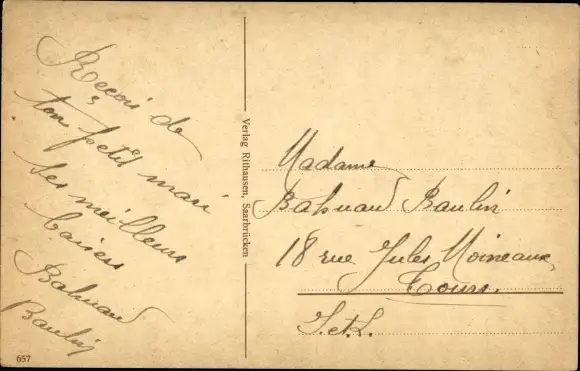 Reçois de
ton petit mari
ses meilleurs
baisers
Bahuaud
Baulin
657
Verlag Rithausen, Saarbrücken
Madame
Bahuaud Baulin
18 rue Jules Moineaux
Tours.
I.et.L.